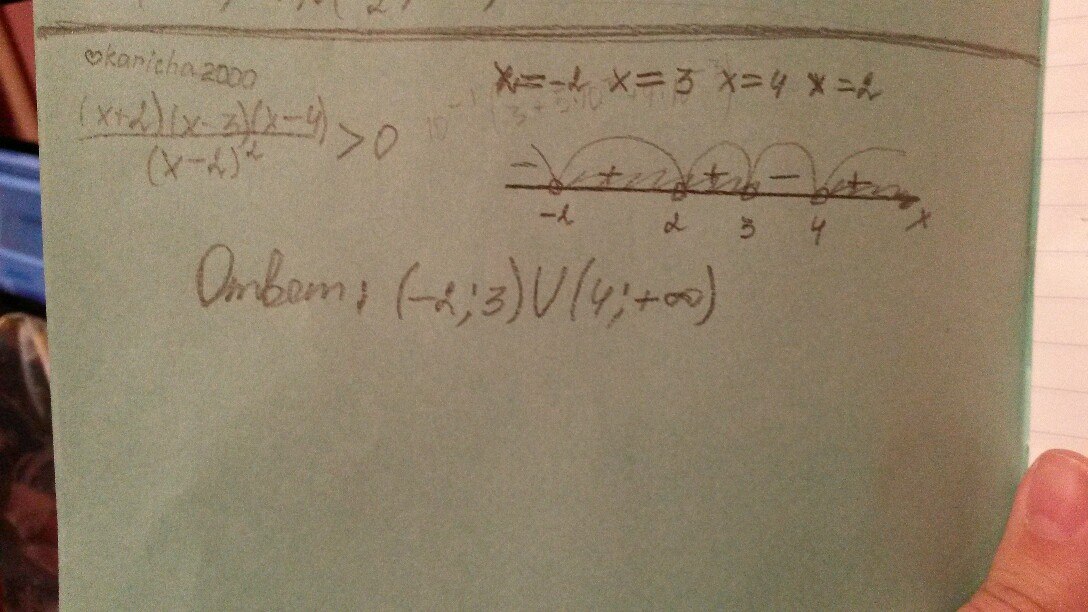 ♡karicha2000
(x+2)(x-3)(x-4)
(x-2)²
>0
x=-2 x=3 x=4 x=2
- + + - +
-2 2 3 4 x
Ответ: (-2;3)∪(4;+∞)